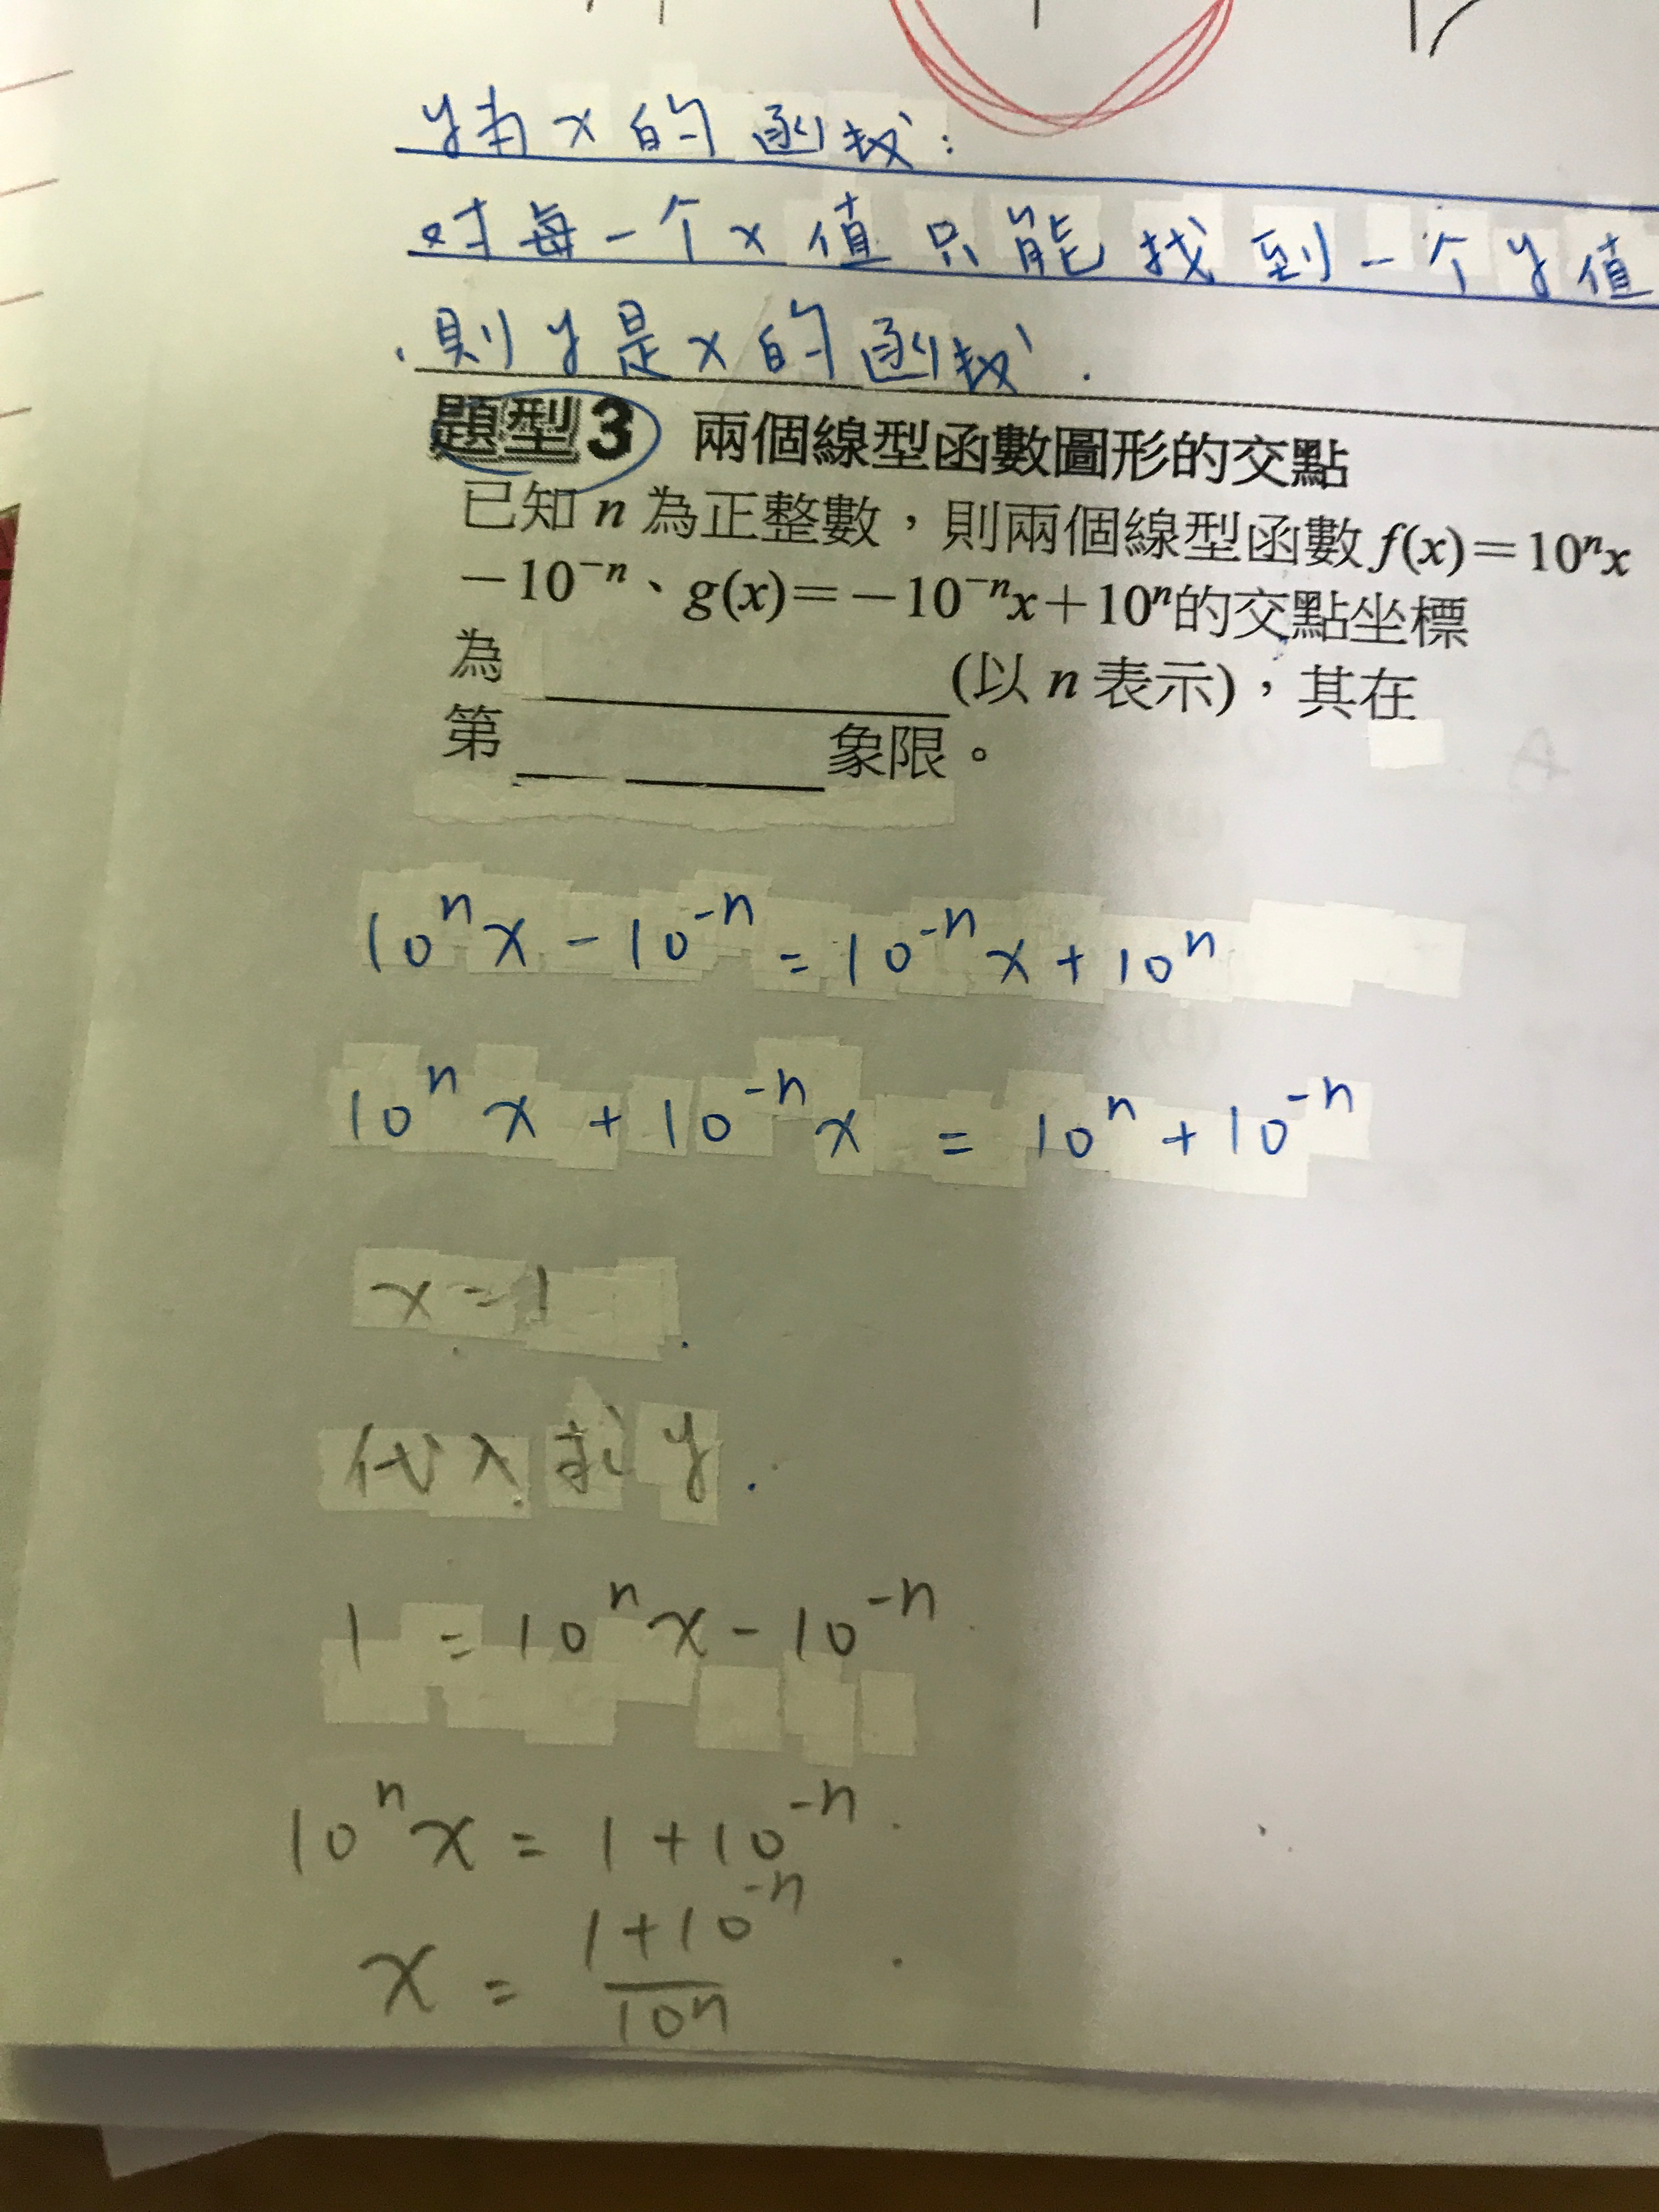 y為x的函数:
对每一个x值只能找到一个y值
.則y是x的函数.
題型3 兩個線型函數圖形的交點
已知 n 為正整數，則兩個線型函數 f(x)＝10ⁿx
－10⁻ⁿ、g(x)＝－10⁻ⁿx＋10ⁿ的交點坐標
為 ________ (以 n 表示)，其在
第 ____ ____ 象限。
10ⁿx - 10⁻ⁿ = 10⁻ⁿx + 10ⁿ
10ⁿx + 10⁻ⁿx = 10ⁿ + 10⁻ⁿ
x = 1
代入求y.
1 = 10ⁿx - 10⁻ⁿ
10ⁿx = 1 + 10⁻ⁿ
x = (1+10⁻ⁿ)/10ⁿ